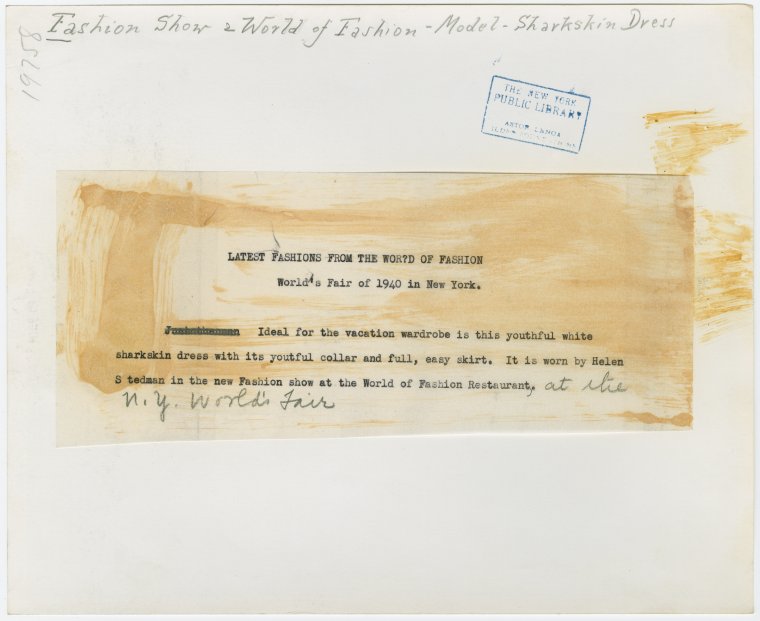 Fashion Show & World of Fashion - Model - Sharkskin Dress
19758
THE NEW YORK
PUBLIC LIBRARY
ASTOR LENOX
LATEST FASHIONS FROM THE WOR?D OF FASHION
World's Fair of 1940 in New York.
Ideal for the vacation wardrobe is this youthful white
sharkskin dress with its youtful collar and full, easy skirt. It is worn by Helen
S tedman in the new Fashion show at the World of Fashion Restaurant, at the
N.Y. World's Fair